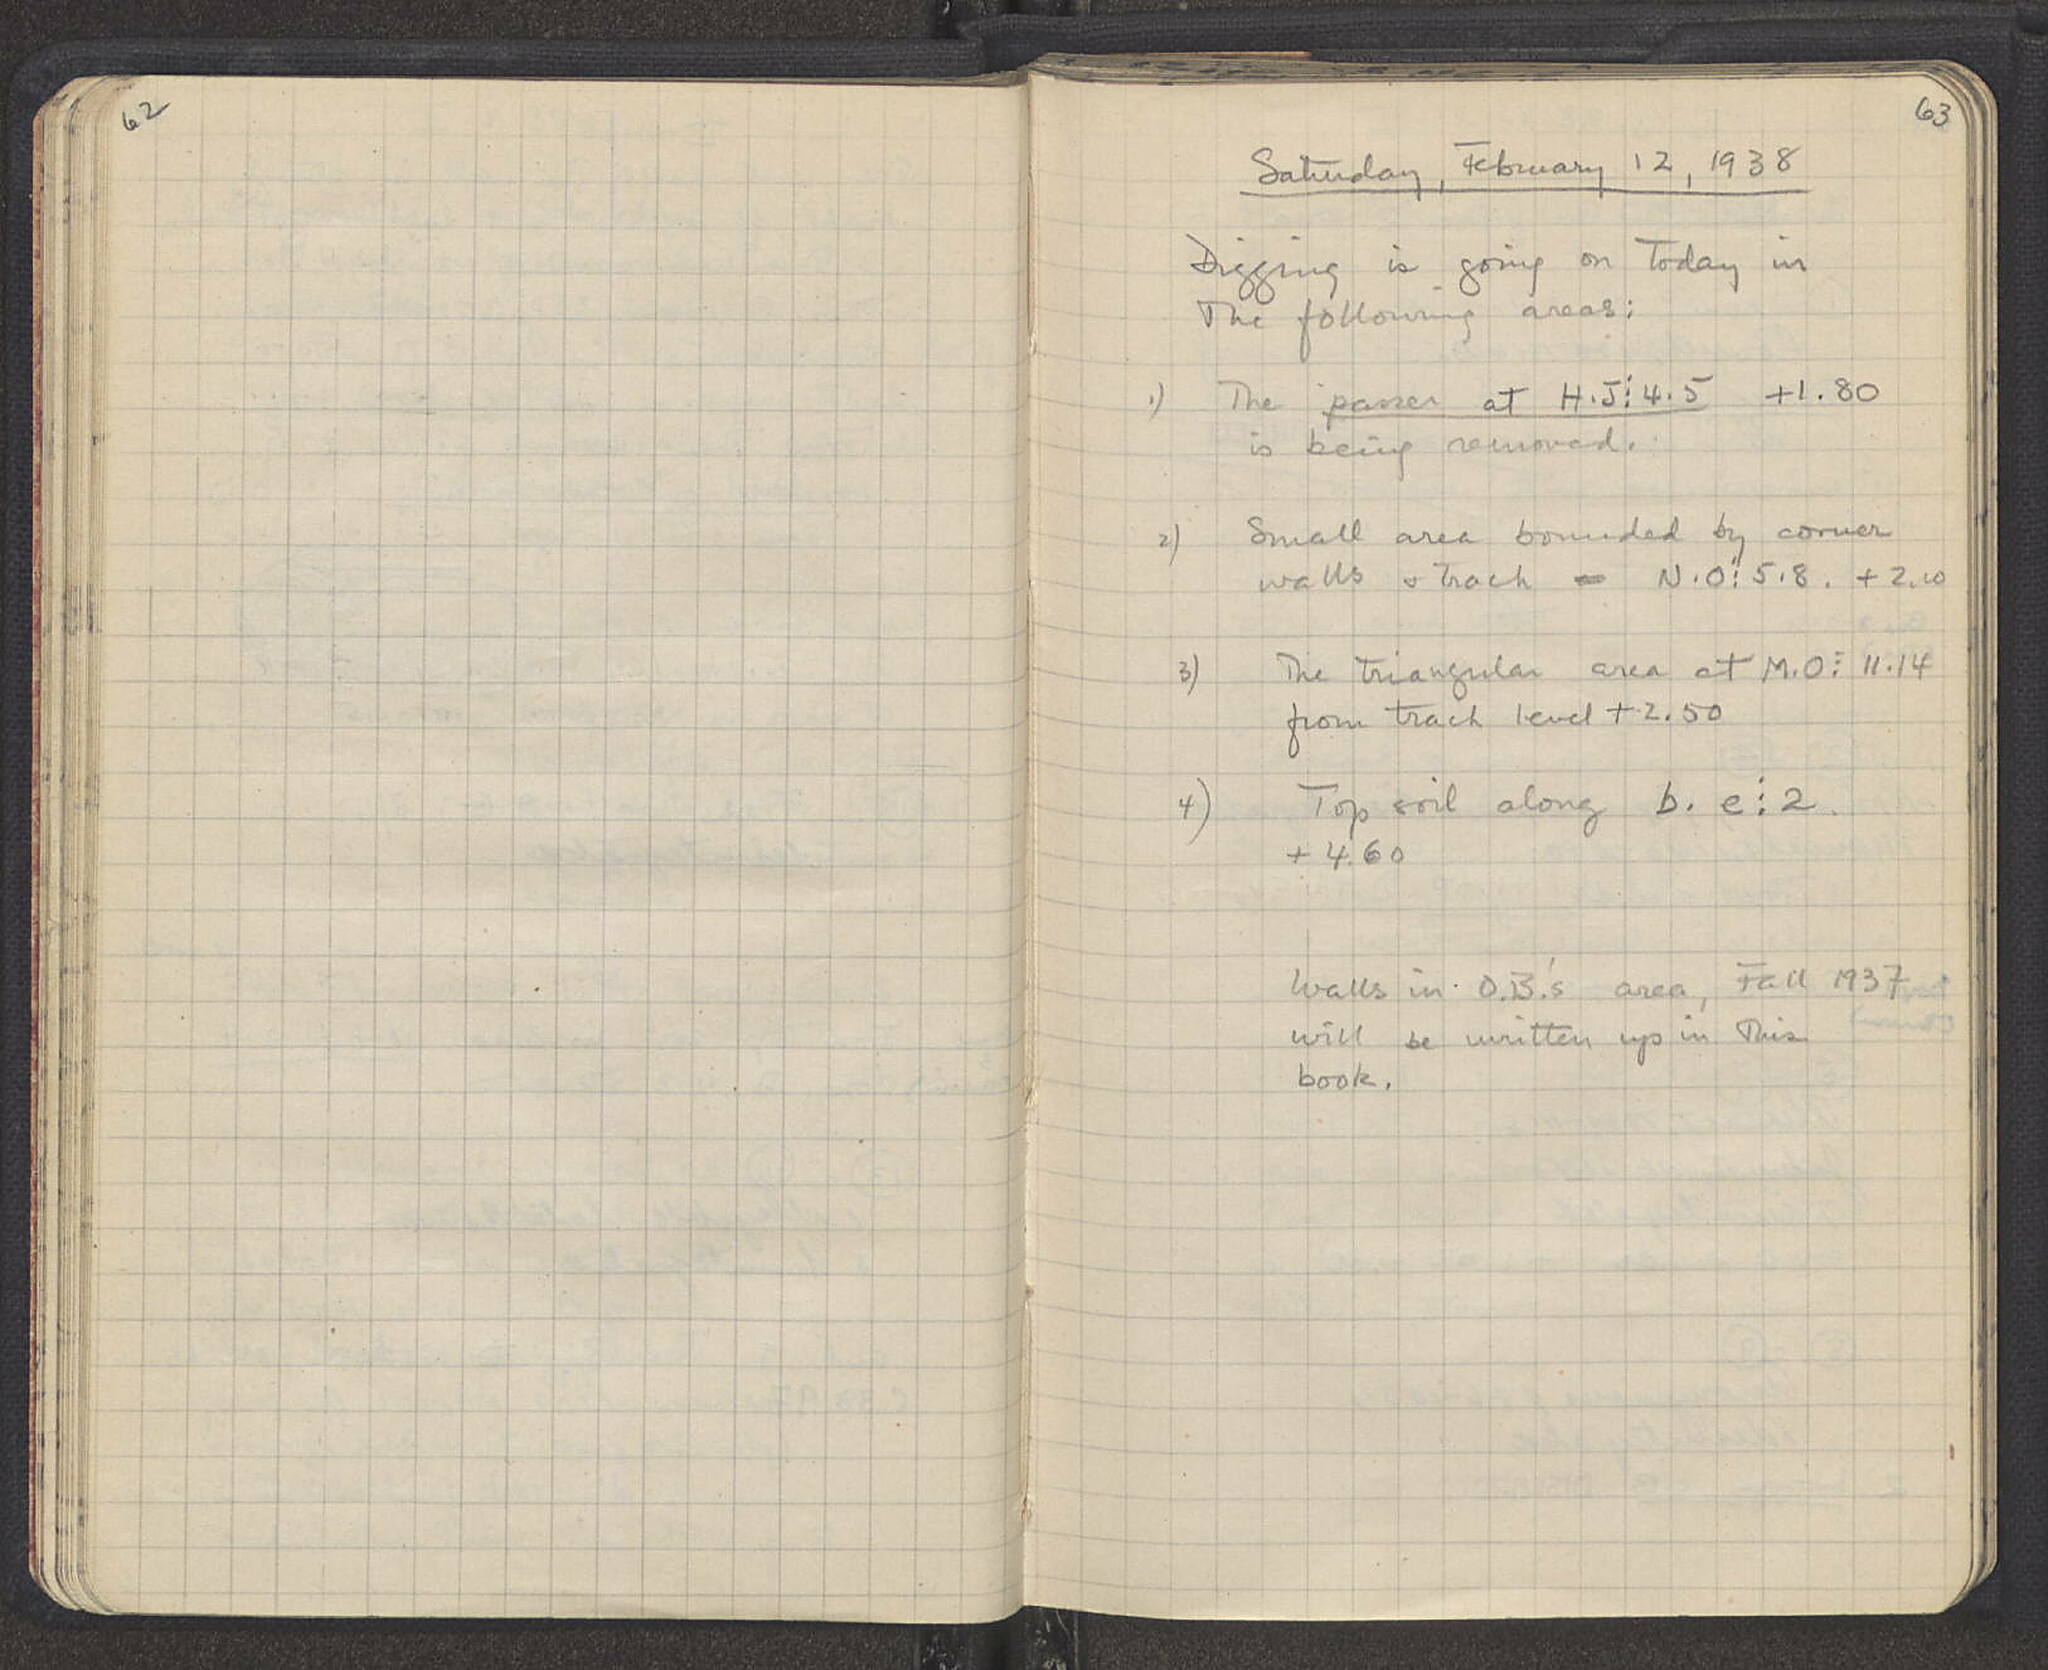 62
63
Saturday, February 12, 1938
Digging is going on today in
the following areas:
1) The passer at H.J:4.5 +1.80
is being removed.
2) Small area bounded by corner
walls & track - N.O:5.8. +2.10
3) The triangular area at M.O: 11.14
from track level +2.50
4) Top soil along b. e:2.
+4.60
Walls in O.B.'s area, Fall 1937
will be written up in this
book.